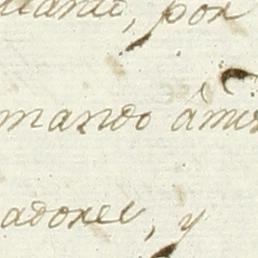 uanto, por
mando âmis
adores, y